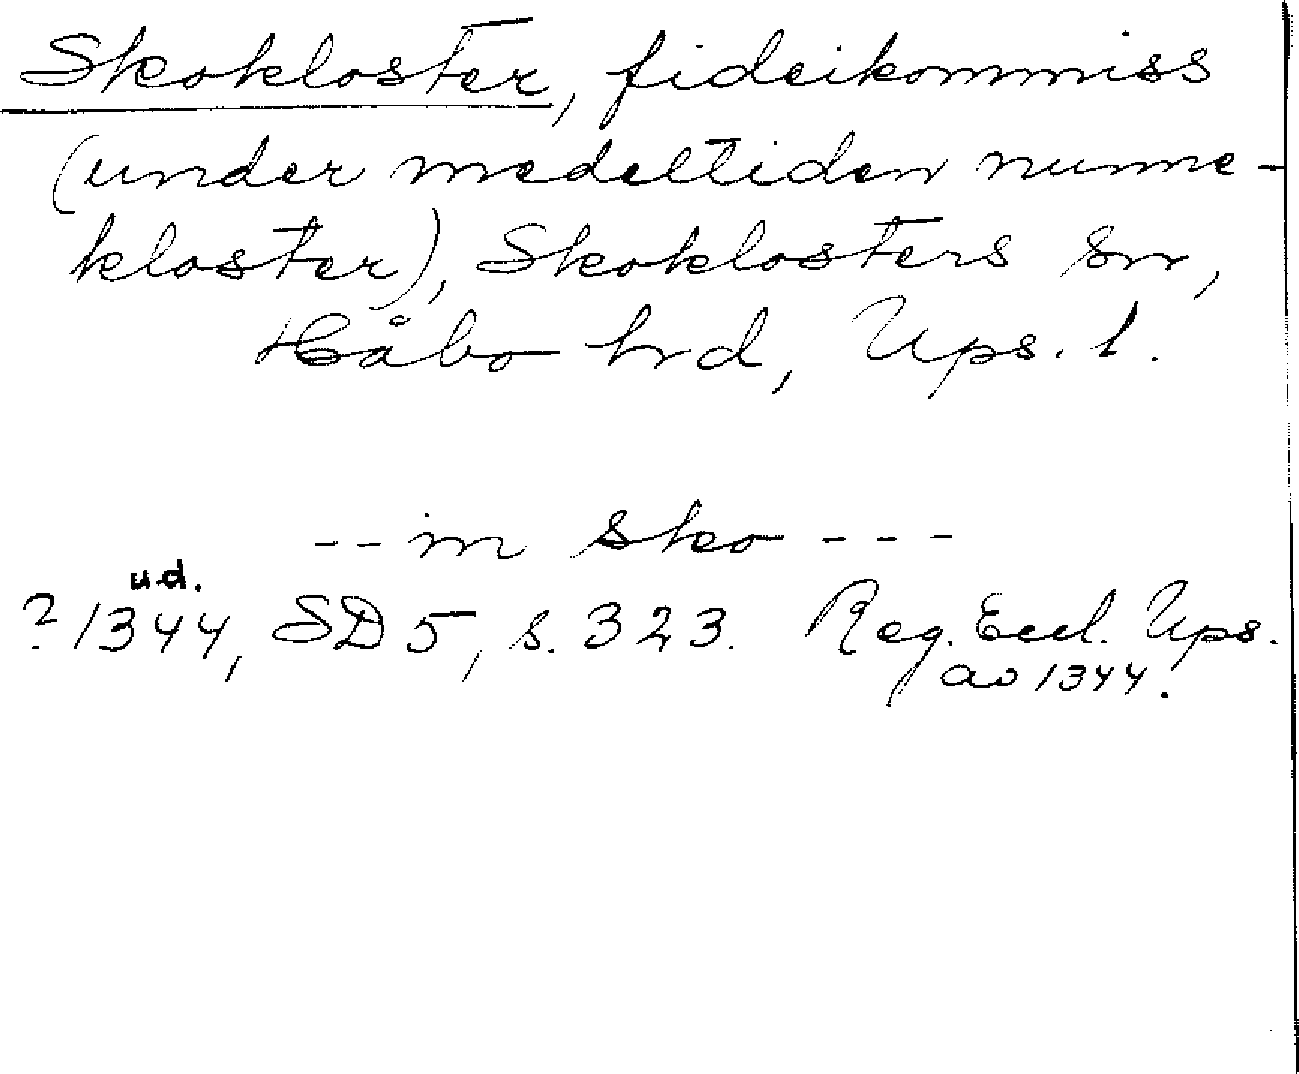 Skokloster, fideikommiss
(under medeltiden nunne-
kloster), Skoklosters sn,
Håbo hd, Ups. l.
-- in sko ---
u.d.
? 1344, SD 5, s. 323. Reg. Eccl. Ups.
av 1344.